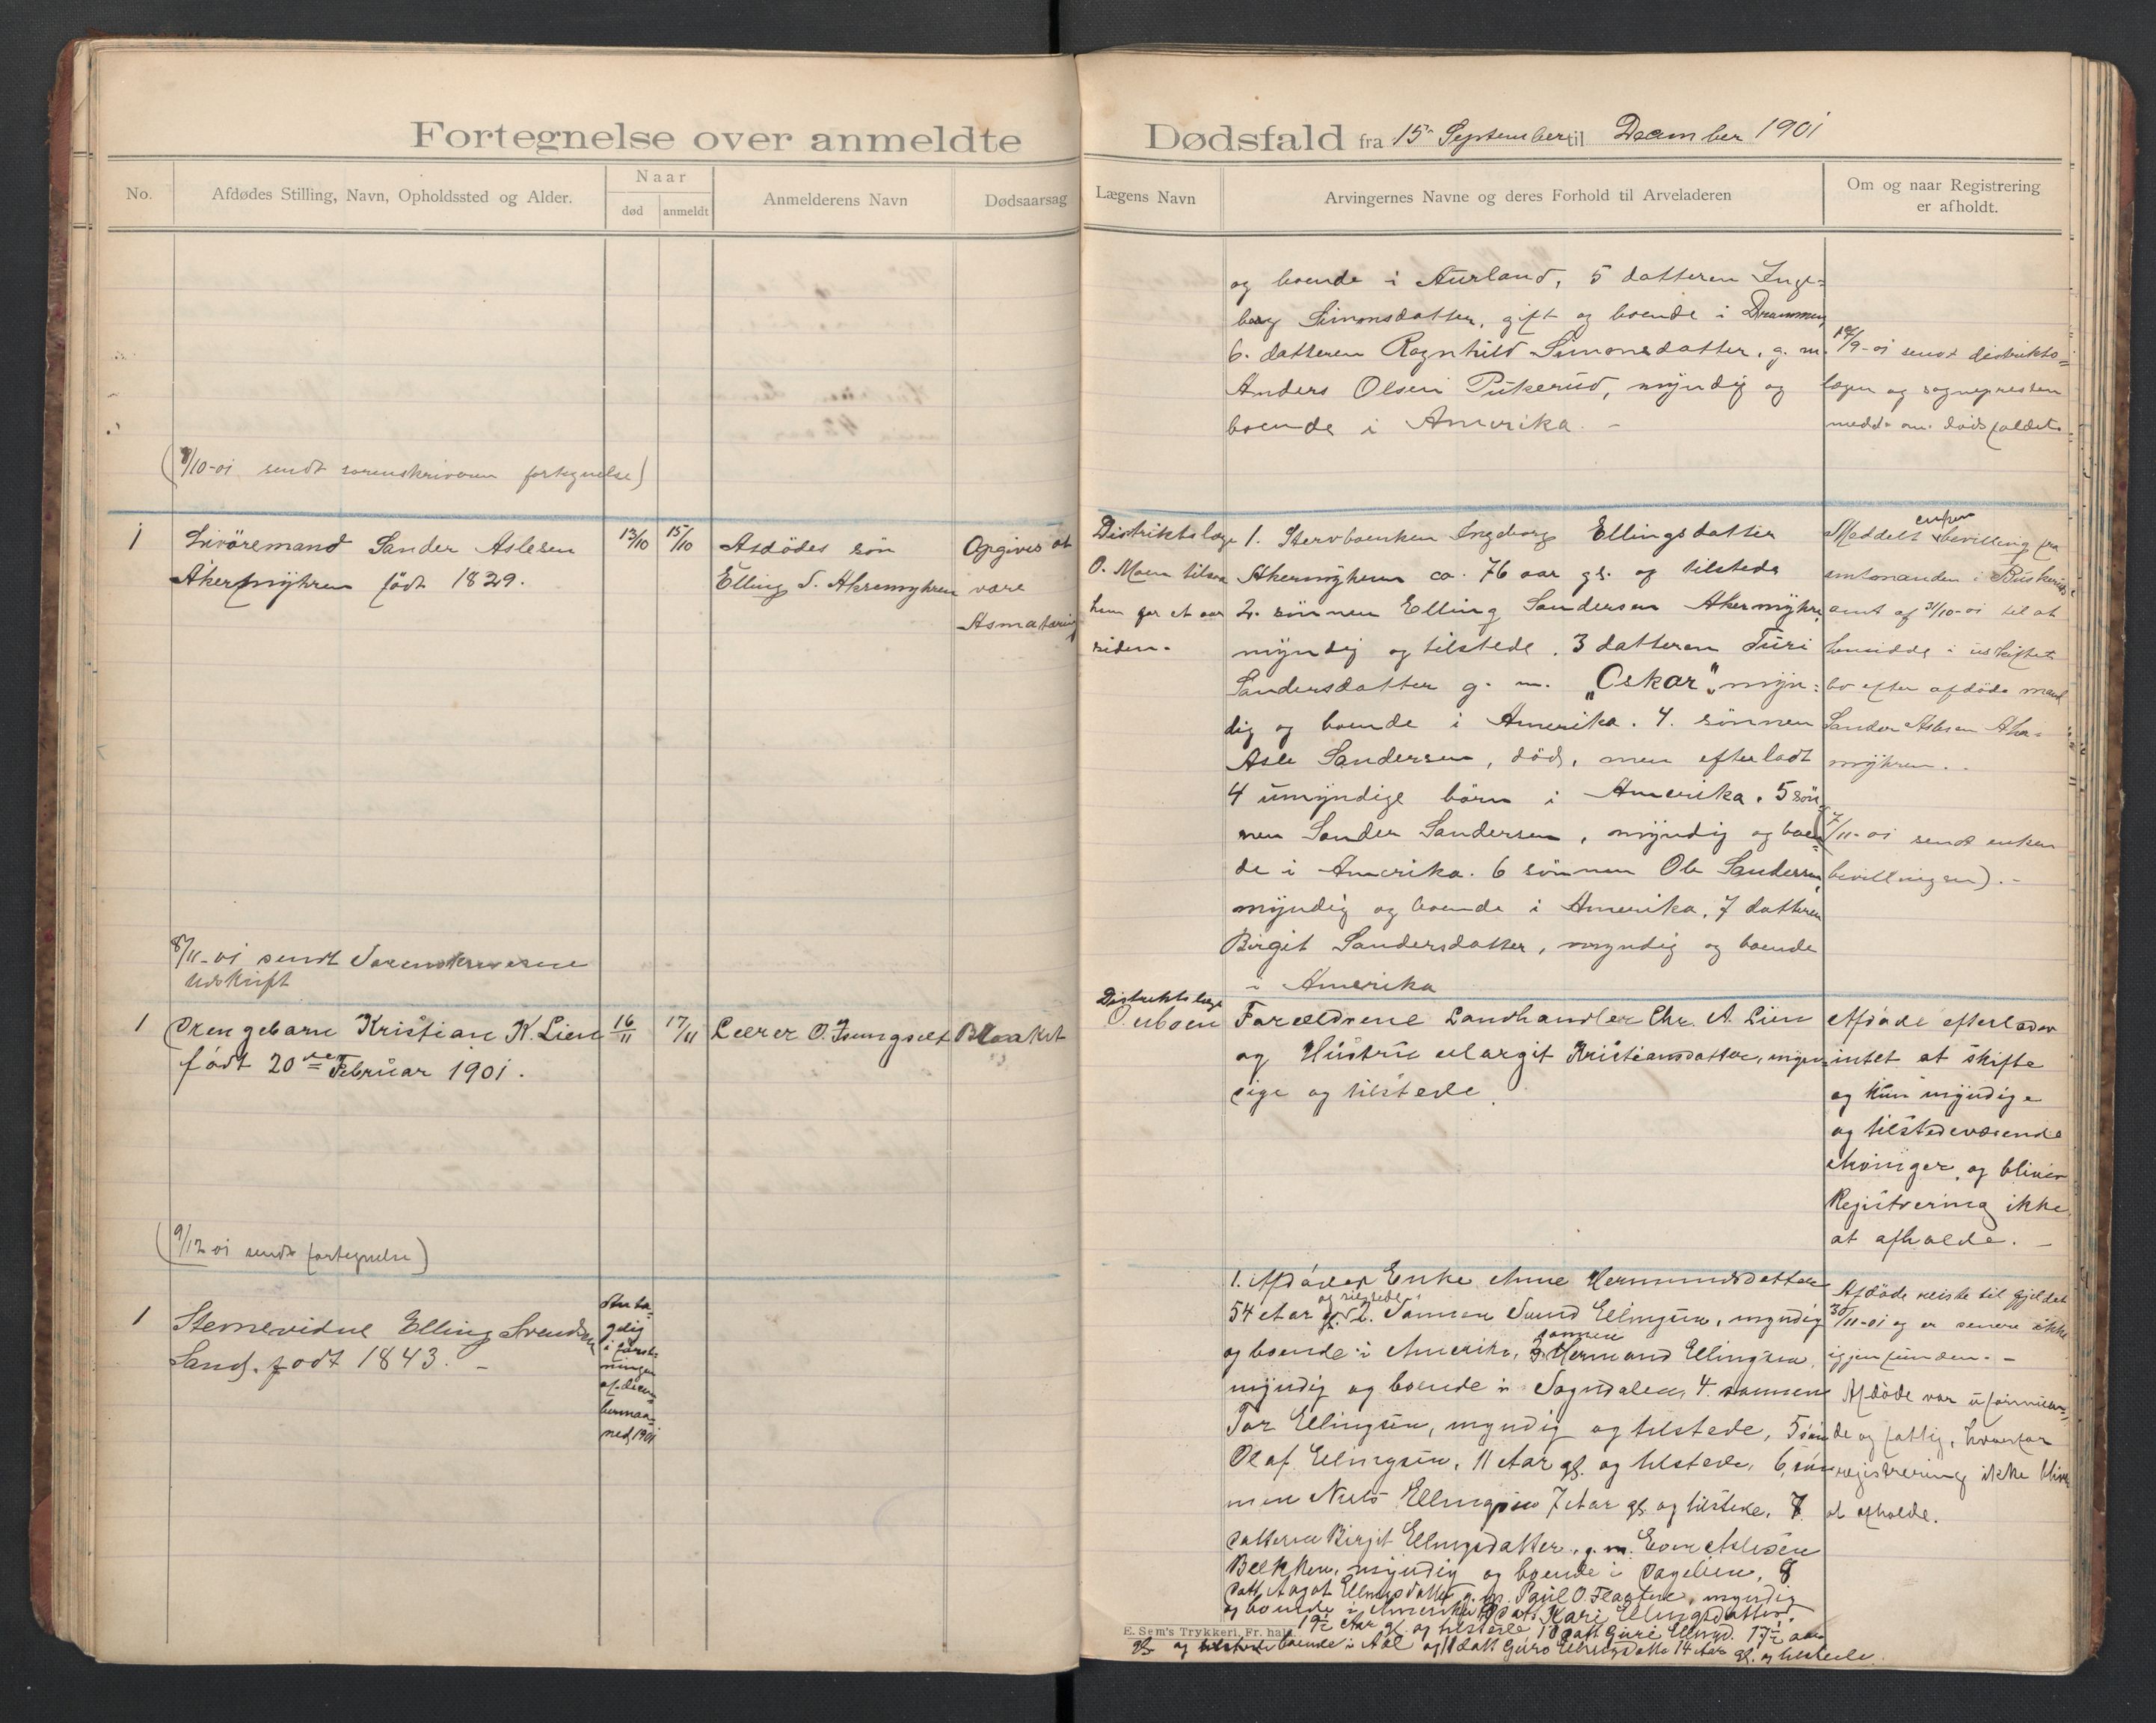 Fortegnelse over anmeldte
Dødsfald fra 15 September til December 1901
No.
Afdødes Stilling, Navn, Opholdssted og Alder.
Naar
død
anmeldt
Anmelderens Navn
Dødsaarsag
Lægens Navn
Arvingernes Navne og deres Forhold til Arveladeren
Om og naar Registrering
er afholdt.
og boende i Aurland, 5 datteren Inge=
borg Simonsdatter, gift og boende i Drammen,
6. datteren Ragnhild Simonsdatter, g. m.
Anders Olsen Pukerud, myndig og
boende i Amerika. -
/9-01 sendt distrikts=
lægen og sognepresten
medd. om dødsfaldet.
(/10-01 sendt sorenskriveren fortegnelse)
1
Livöremand Sander Aslesen
Åkermyhren födt 1829.
13/10
15/10
Afdödes sön
Elling S. Akremyhren
Opgives at
være
Asmatæring
Distriktslæge
O. Moen tilsaa
ham for et aar
siden.
1. Stervboenken Ingeborg Ellingsdatter
Akermyhren ca. 76 aar gl. og tilstede
2. sönnen Elling Sandersen Akermyhre,
myndig og tilstede. 3 datteren Turi
Sandersdatter g. m. "Oskar", myn=
dig og boende i Amerika. 4. sönnen
Asle Sandersen, död, men efterladt
4 umyndige börn i Amerika. 5 sön=
nen Sander Sandersen, myndig og boen=
de i Amerika. 6 sönnen Ole Sandersen,
myndig og boende i Amerika, 7 datteren
Birgit Sandersdatter, myndig og boende
i Amerika
enken
Meddelt bevilling fra
amtmanden i Buskeruds
amt af 31/10-01 til at
hensidde i uskiftet
bo efter afdöde mand
Sander Aslesen Aker=
myhren..
(7/11-01 sendt enken
bevillingen). -
8/11-01 sendt Sorenskriveren
Udskrift
1
Drengebarn Kristian K. Lien
födt 20de Februar 1901.
16/11
17/11
Lærer O.
Distriktslæge
O. Moen
Forældrene Landhandler Chr. A. Lien
og Hustru Margit Kristiansdatter, myn=
dige og tilstede.
Afdöde efterlader
intet at skifte
og kun myndige
og tilstedeværende
Arvinger, og bliver
Registrering ikke
at afholde. -
(9/12 01 sendt fortegnelse)
1
Elling Svendsen
Sand, födt 1843. -
Anta=
gelig
i
ningen
af decem=
bermaa=
ned 1901
1. Afdödes Enke Anne Hermundsdatter
og tilstede
54 Aar gl. 2. Sönnen Svend Ellingsen, myndig
sönnen
og boende i Amerika, 3 Hermand Ellingsen,
myndig og boende i Sogndalen, 4. sönnen
Tor Ellingsen, myndig og tilstede, 5 sön
Olaf Ellingsen, 11 Aar gl. og tilstede, 6, sön
nen Niels Ellingsen 7 Aar gl. og tilstede, 7.
datteren Birgit Ellingsdatter, g. m. Even Aslesen
Bekken, myndig og boende i Dagalien, 8
datt. Aagot Ellingsdatter g. m. Paul O. Flaaten, myndig
og boende i Amerika 9 dat. Kari Ellingsdatter
19½ Aar gl. og tilstede 10 datt Guri Ellingsd. 17½ aar
gl. og boende i Aal og 11 datt Guro Ellingsdatte 14 Aar gl. og tilstede.
Afdöde reiste til fjeldet
30/11-01 og er senere ikke
igjenfunden. -
Afdöde var uformuen=
de og fattig, hvorfor
registrering ikke blive
at afholde.
E. Sem's Trykkeri, Fr. hald